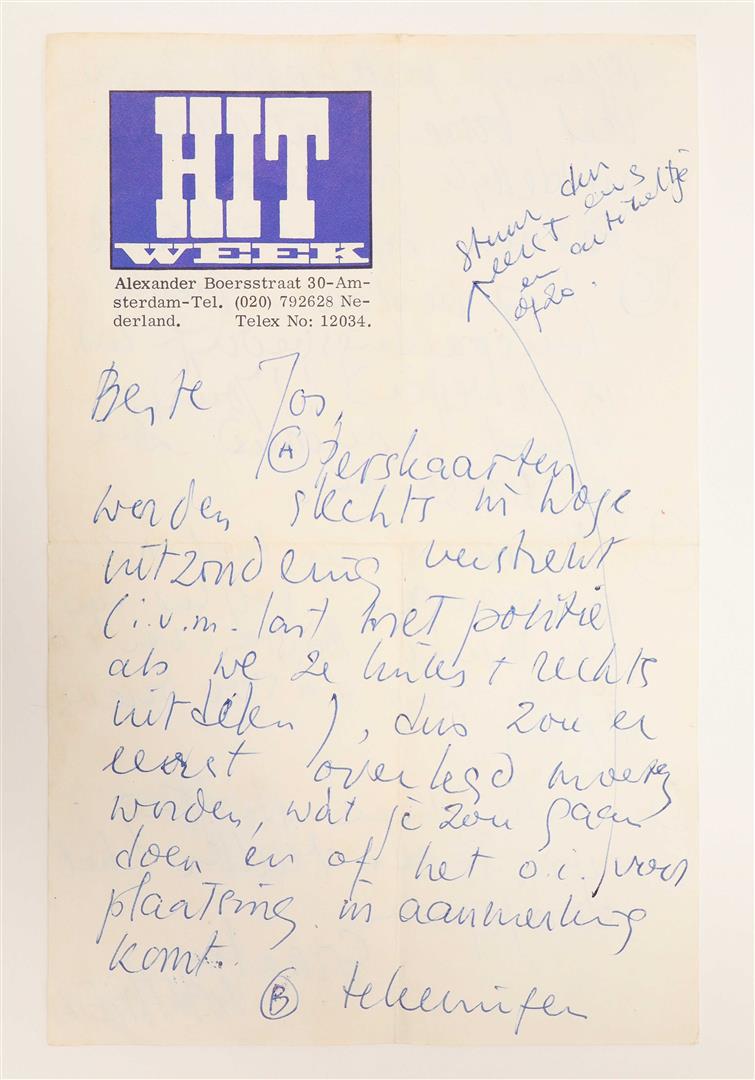 HIT
WEEK
Alexander Boersstraat 30-Am-
sterdam-Tel. (020) 792628 Ne-
derland. Telex No: 12034.
stuur dan
eerst eens
en artikeltje
of zo.
Beste Jos,
(A) Perskaarten
worden slechts in hoge
uitzondering verstrekt
(i.v.m. last met politie
als we ze links + rechts
uitdelen), dus zou er
eerst overlegd moeten
worden, wat je zou gaan
doen en of het o.i. voor
plaatsing in aanmerking
komt.
(B) tekeningen